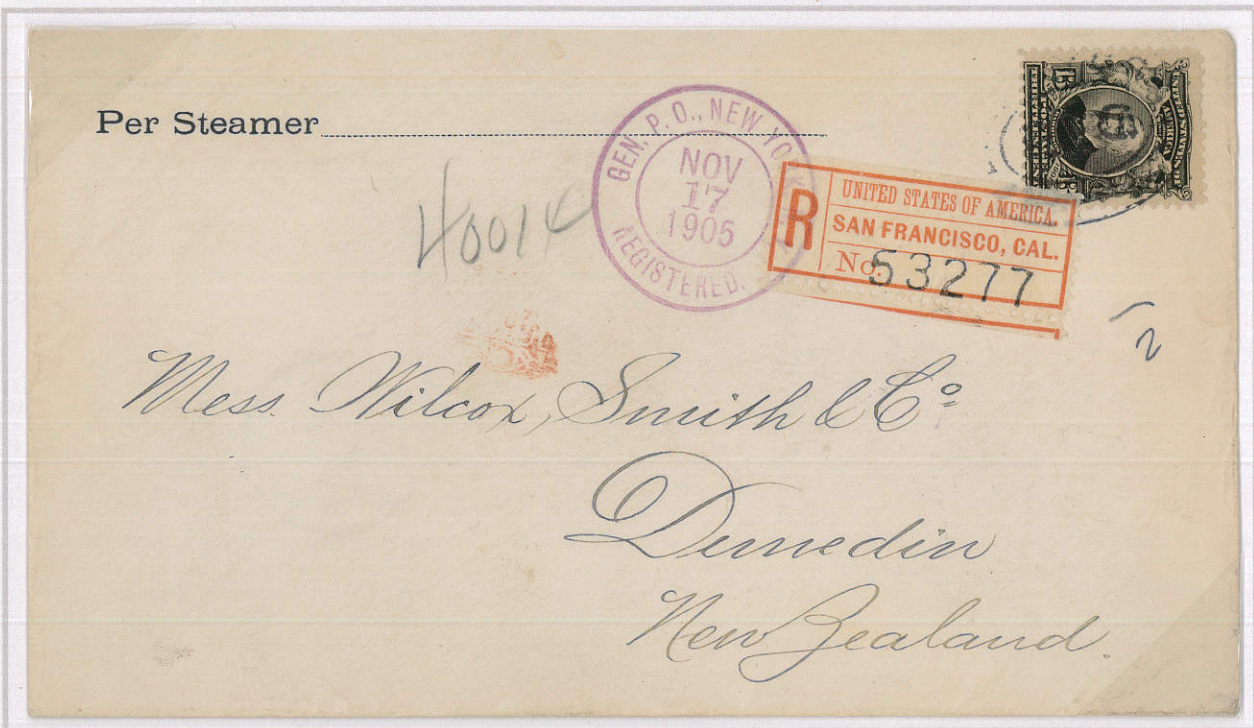 Per Steamer
GEN. P. O., NEW YO
NOV
17
1905
REGISTERED.
R
UNITED STATES OF AMERICA.
SAN FRANCISCO, CAL.
No. 53277
13
UNITED STATES OF AMERICA
4001
Mess. Wilcox, Smith & Co
Dunedin
New Zealand.
2